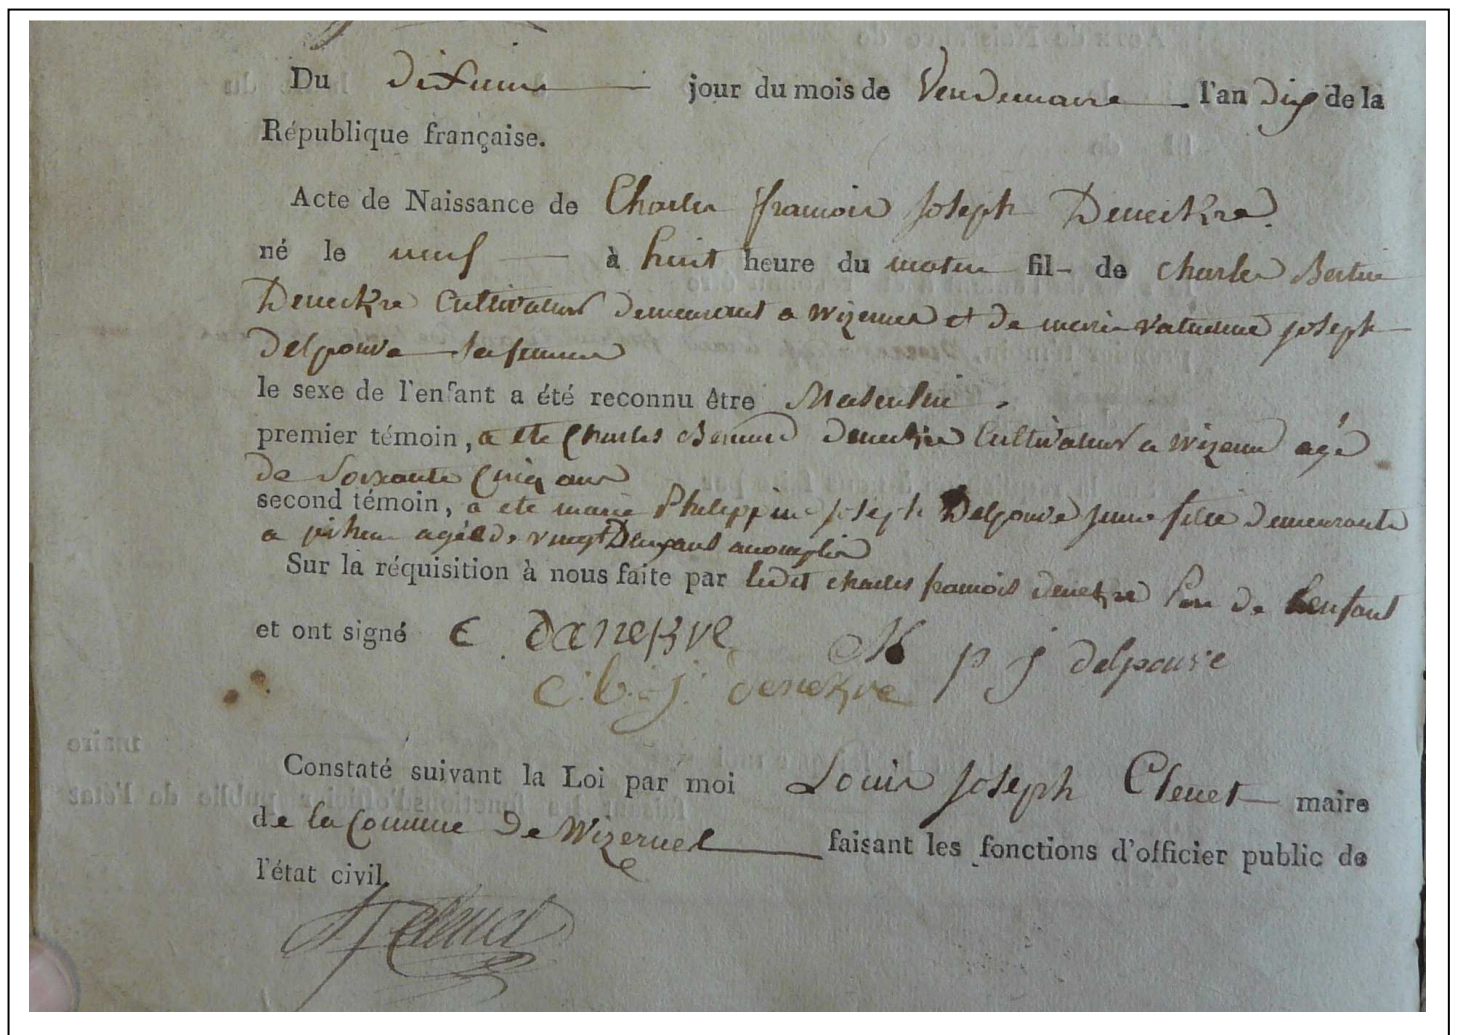 Du dixieme jour du mois de Vendemaire l'an dix de la
République française.
Acte de Naissance de Charles francois joseph Deneckre.
né le neuf à huit heure du matin fil- de charles Bertin
Deneckre Cultivateur demeurant a wizernes et de marie joseph
Delpouve sa femme
le sexe de l'enfant a été reconnu être Masculin.
premier témoin, a ete Charles Deneckre Cultivateur a Wizerne agé
de Soixante Cinq ans
second témoin, a ete marie Philippine joseph Delpouve jeune fille demeurante
a agée de vingt ans accomplie
Sur la réquisition à nous faite par ledit charles francois denekre Pere de Lenfant
et ont signé C danekre M p j delpouve
c. b. j. denekre
Constaté suivant la Loi par moi Louis joseph Clenet maire
de la Commune De Wizernes faisant les fonctions d'officier public de
l'état civil.